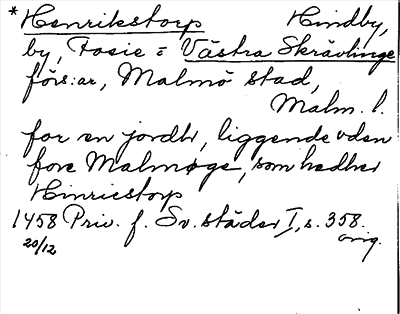 * Henrikstorp Hindby,
by, Fosie = Västra Skrävlinge
förs:ar, Malmö stad,
Malm. l.
for en jordh, liggende vden
fore Malmøge, som hedher
Hinricstorp
1458 Priv. f. Sv. städer I, s. 358.
20/12 orig.